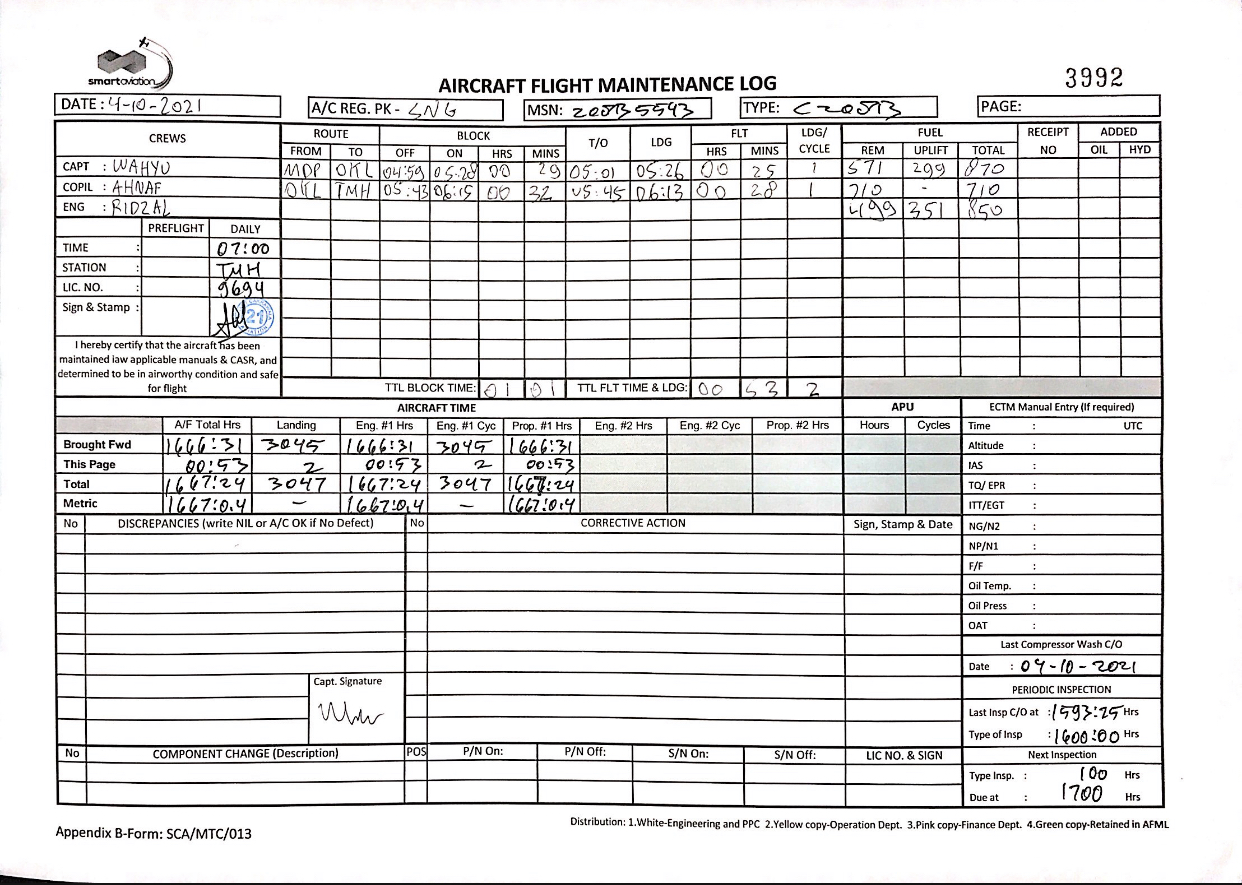 smartaviation
AIRCRAFT FLIGHT MAINTENANCE LOG
3992
DATE: 4-10-2021
A/C REG. PK - SNG
MSN: 208B5593
TYPE: C208B
PAGE:
CREWS ROUTE BLOCK T/O LDG FLT LDG/CYCLE FUEL RECEIPT NO ADDED
FROM TO OFF ON HRS MINS HRS MINS REM UPLIFT TOTAL OIL HYD
CAPT : WAHYU MDP OKL 04:59 05:28 00 29 05:01 05:26 00 25 1 571 299 870
COPIL : AHNAF OKL TMH 05:43 06:15 00 32 05:45 06:13 00 28 1 710 - 710
ENG : RIDZAL 499 351 850
PREFLIGHT DAILY
TIME : 07:00
STATION : TMH
LIC. NO. : 9694
Sign & Stamp : 21
I hereby certify that the aircraft has been
maintained iaw applicable manuals & CASR, and
determined to be in airworthy condition and safe
for flight
TTL BLOCK TIME: 01 01 TTL FLT TIME & LDG: 00 53 2
AIRCRAFT TIME APU ECTM Manual Entry (If required)
A/F Total Hrs Landing Eng. #1 Hrs Eng. #1 Cyc Prop. #1 Hrs Eng. #2 Hrs Eng. #2 Cyc Prop. #2 Hrs Hours Cycles Time : UTC
Brought Fwd 1666:31 3045 1666:31 3045 1666:31 Altitude :
This Page 00:53 2 00:53 2 00:53 IAS :
Total 1667:24 3047 1667:24 3047 1667:24 TQ/ EPR :
Metric 1667:0.4 - 1667:0.4 - 1667:0.4 ITT/EGT :
No DISCREPANCIES (write NIL or A/C OK if No Defect) No CORRECTIVE ACTION Sign, Stamp & Date NG/N2 :
NP/N1 :
F/F :
Oil Temp. :
Oil Press :
OAT :
Last Compressor Wash C/O
Date : 04-10-2021
Capt. Signature
PERIODIC INSPECTION
Last Insp C/O at : 1593:25 Hrs
Type of Insp : 1600:00 Hrs
No COMPONENT CHANGE (Description) POS P/N On: P/N Off: S/N On: S/N Off: LIC NO. & SIGN Next Inspection
Type Insp. : 100 Hrs
Due at : 1700 Hrs
Distribution: 1.White-Engineering and PPC 2.Yellow copy-Operation Dept. 3.Pink copy-Finance Dept. 4.Green copy-Retained in AFML
Appendix B-Form: SCA/MTC/013